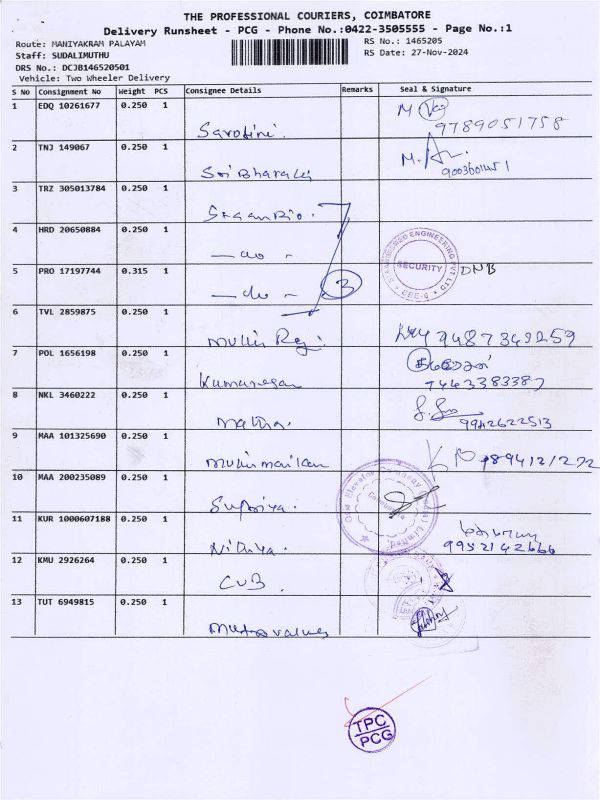 THE PROFESSIONAL COURIERS, COIMBATORE
Delivery Runsheet - PCG - Phone No.:0422-3505555 - Page No.:1
Route: MANIYAKRAM PALAYAM RS No.: 1465205
Staff: SUDALIMUTHU RS Date: 27-Nov-2024
DRS No.: DCJB146520501
Vehicle: Two Wheeler Delivery
S No Consignment No Weight PCS Consignee Details Remarks Seal & Signature
1 EDQ 10261677 0.250 1 Sarojini. 9789051758
2 TNJ 149067 0.250 1 Sri Bharath
3 TRZ 305013784 0.250 1
4 HRD 20650884 0.250 1 — do -
5 PRO 17197744 0.315 1 — do - 3 SECURITY DNB
6 TVL 2859875 0.250 1 9487349259
7 POL 1656198 0.250 1 Kumaresan 7463383387
8 NKL 3460222 0.250 1 9942622513
9 MAA 101325690 0.250 1
10 MAA 200235089 0.250 1 Supriya. Otis Elevator Company Coimbatore
11 KUR 1000607188 0.250 1 Nithya. 9952142666
12 KMU 2926264 0.250 1 CUB
13 TUT 6949815 0.250 1
TPC
PCG